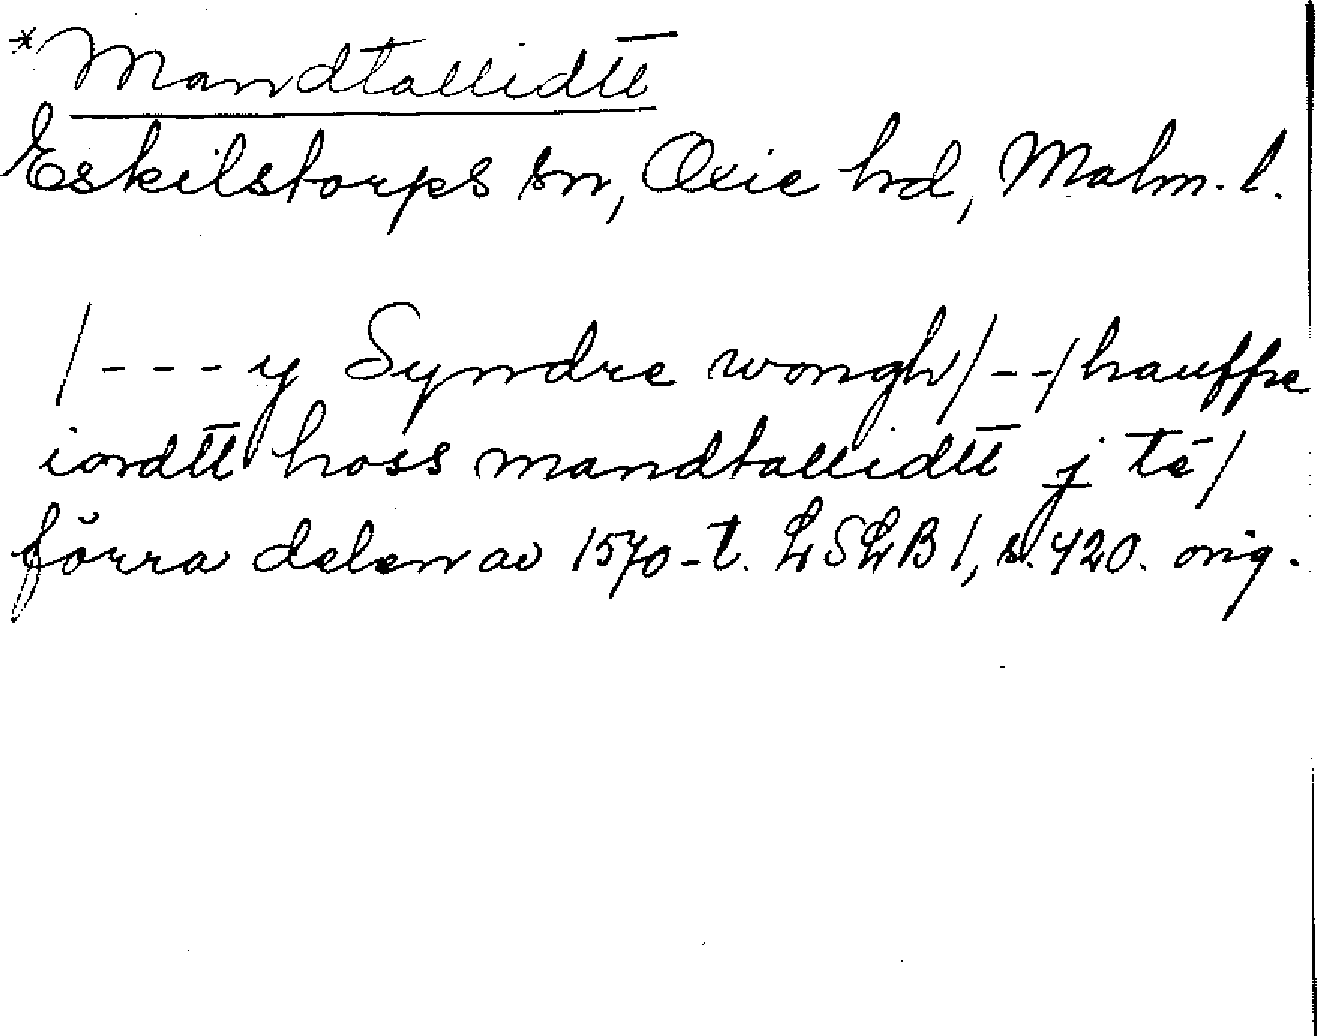 *Mandtallidtt̅
Eskilstorps sn, Oxie hd, Malm. l.
/--- y Syndre wongh/--/hauffue
iordtt̅ hoss mandtallidtt̅ j té/
förra delen av 1570-t. LSLB 1, s. 420. orig.